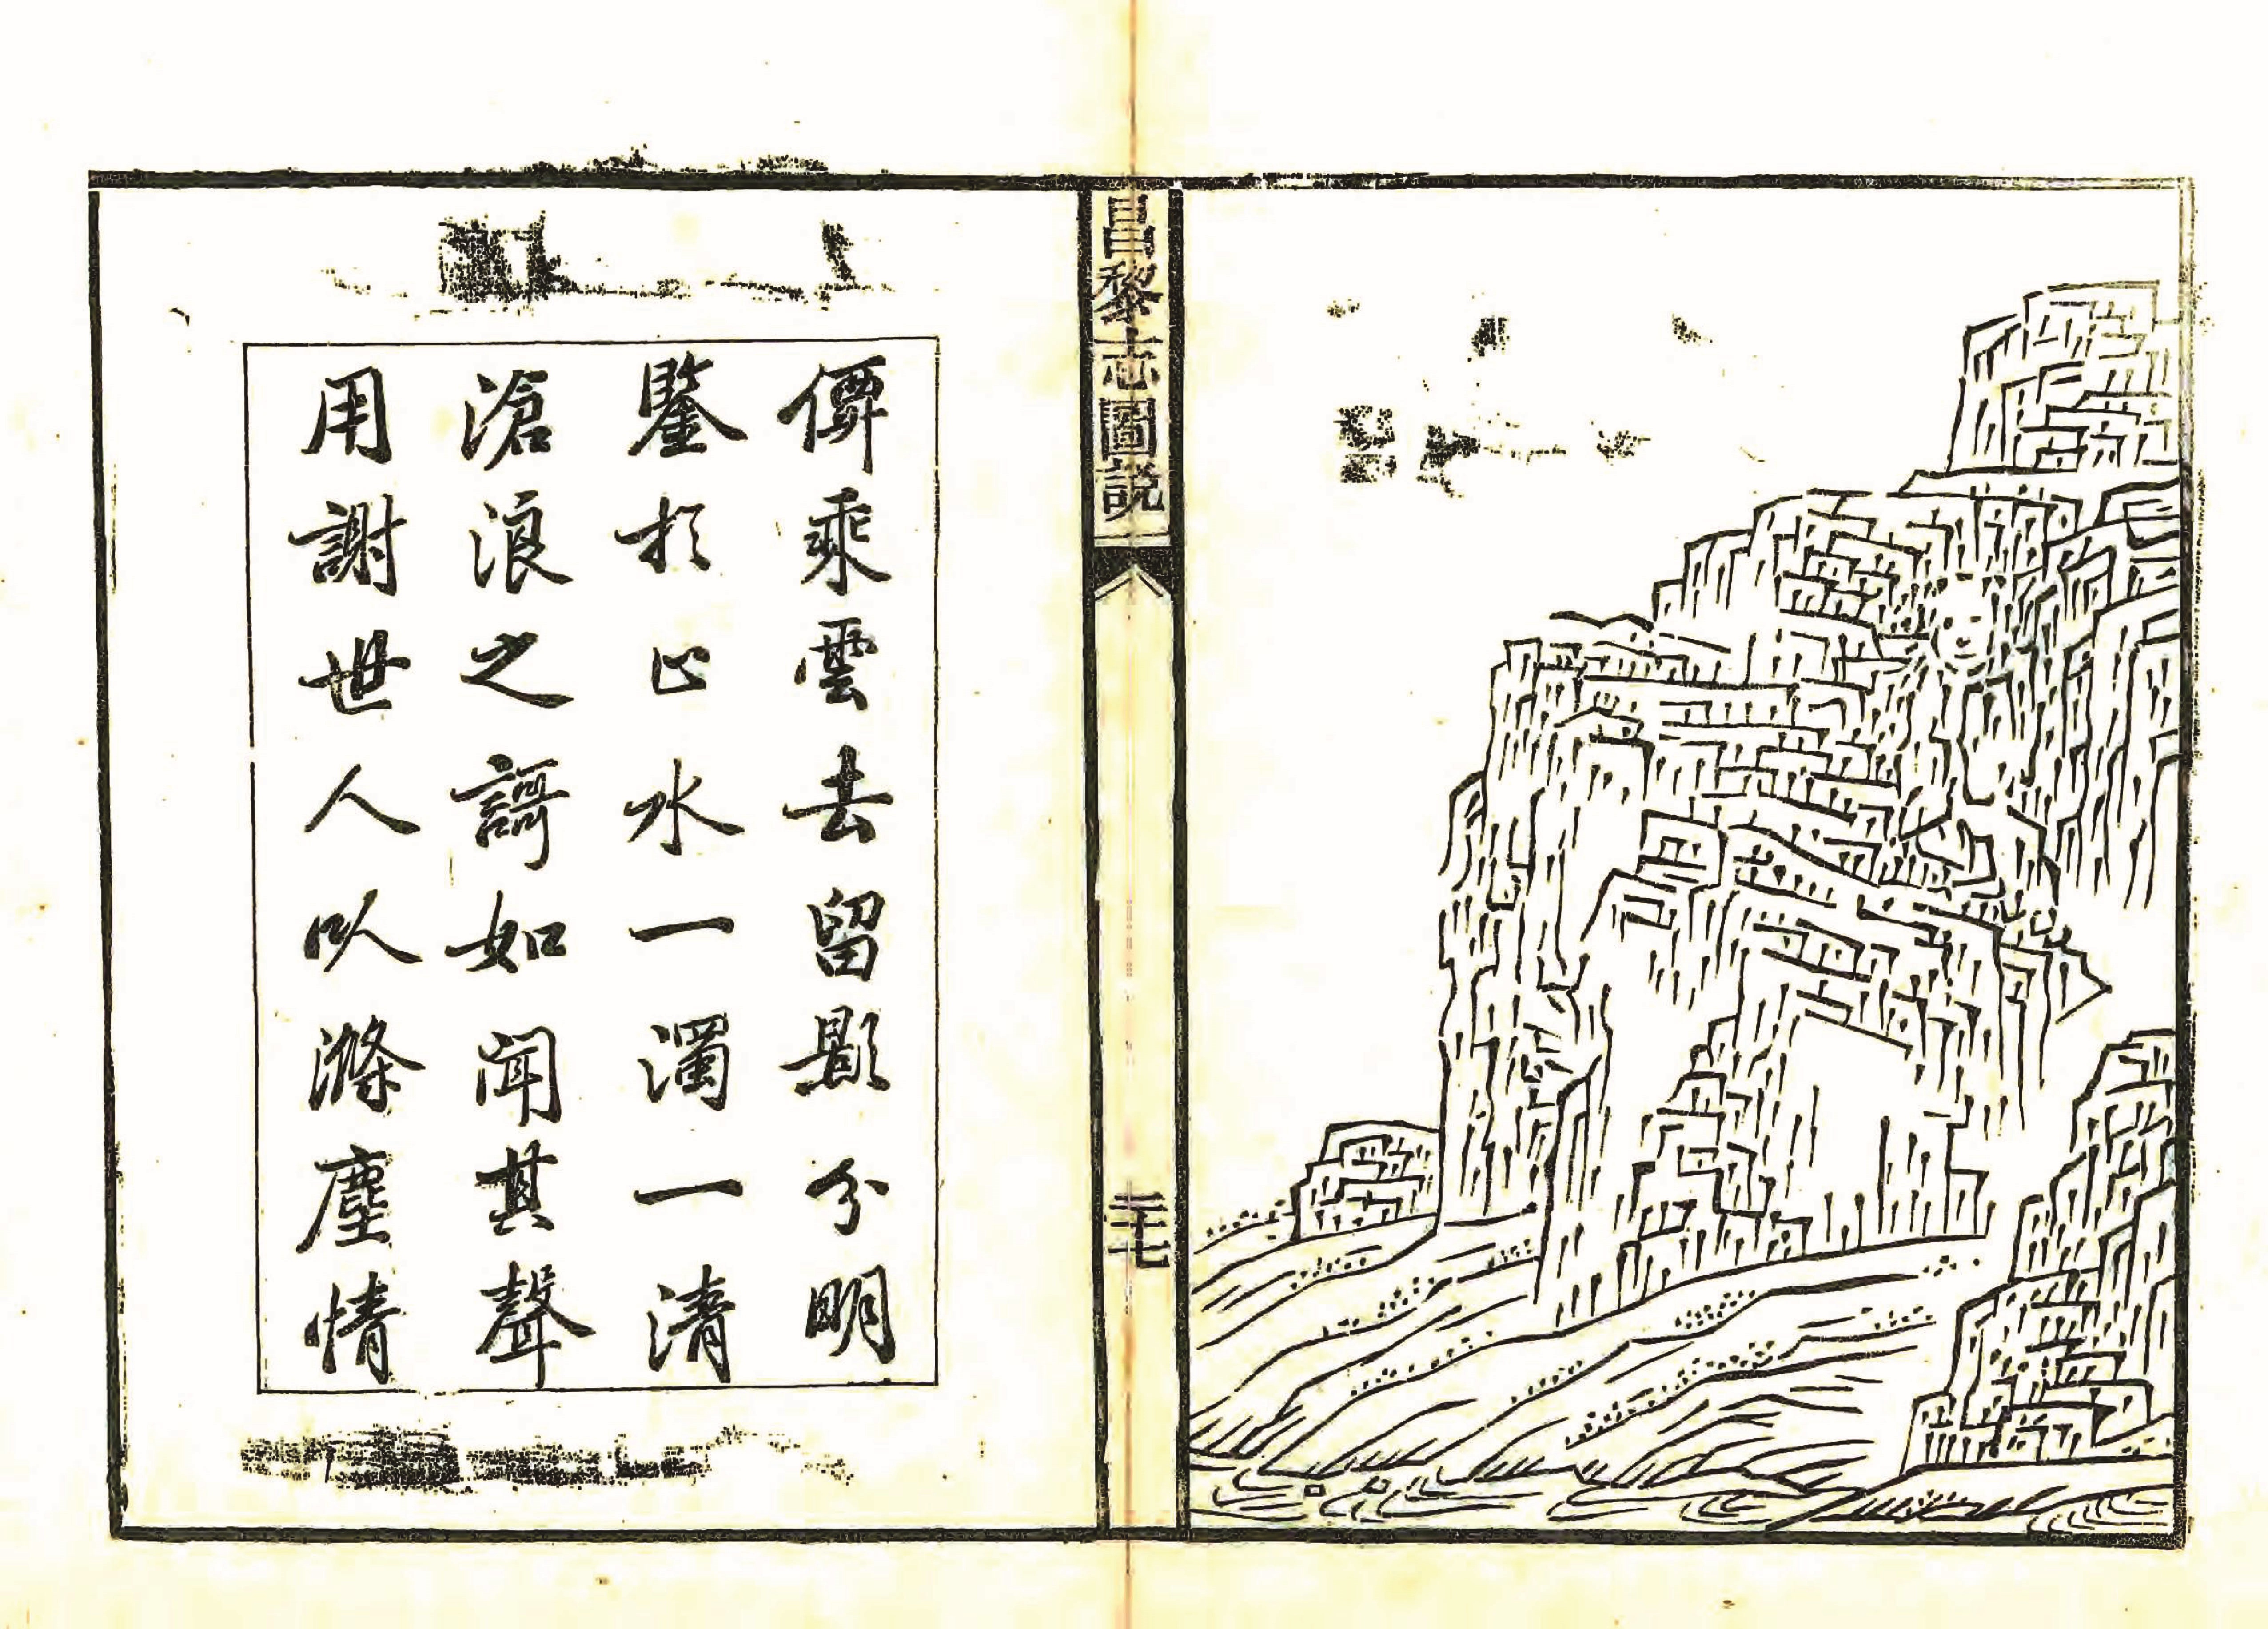 昌黎志圖説
二十七
僊乘雲去留影分明
鑒於止水一濁一清
滄浪之謌如聞其聲
用謝世人以滌塵情